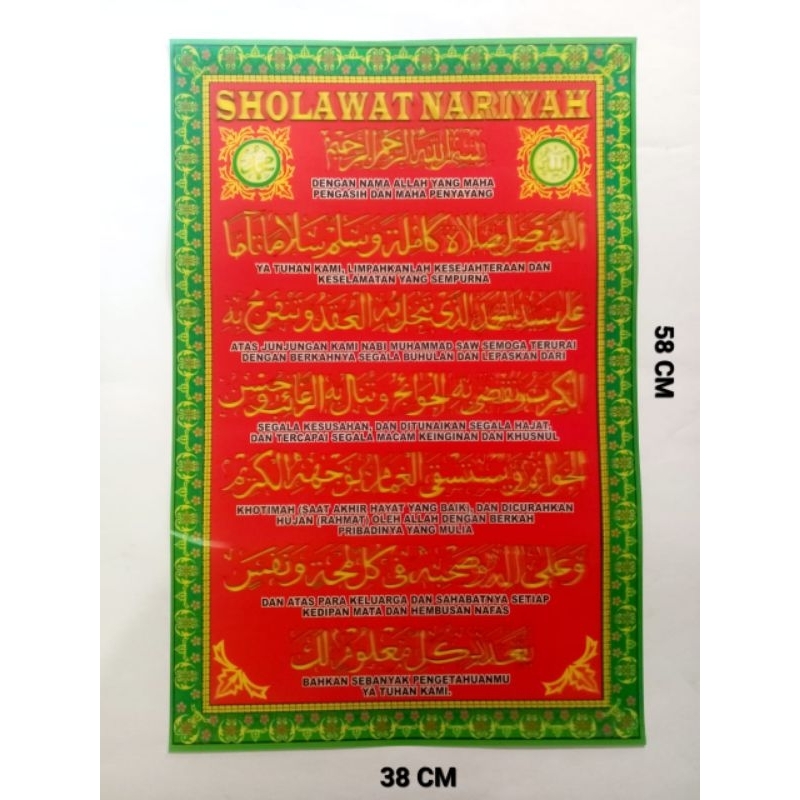 SHOLAWAT NARIYAH
بسم الله الرحمن الرحيم
محمد
الله
DENGAN NAMA ALLAH YANG MAHA
PENGASIH DAN MAHA PENYAYANG
اللهم صل صلاة كاملة وسلم سلاما تاما
YA TUHAN KAMI, LIMPAHKANLAH KESEJAHTERAAN DAN
KESELAMATAN YANG SEMPURNA
على سيدنا محمد الذي تنحل به العقد وتنفرج به
ATAS JUNJUNGAN KAMI NABI MUHAMMAD SAW SEMOGA TERURAI
DENGAN BERKAHNYA SEGALA BUHULAN DAN LEPASKAN DARI
الكرب وتقضى به الحوائج وتنال به الرغائب وحسن
SEGALA KESUSAHAN, DAN DITUNAIKAN SEGALA HAJAT,
DAN TERCAPAI SEGALA MACAM KEINGINAN DAN KHUSNUL
الخواتم ويستسقى الغمام بوجهه الكريم
KHOTIMAH (SAAT AKHIR HAYAT YANG BAIK), DAN DICURAHKAN
HUJAN (RAHMAT) OLEH ALLAH DENGAN BERKAH
PRIBADINYA YANG MULIA
وعلى اله وصحبه في كل لمحة ونفس
DAN ATAS PARA KELUARGA DAN SAHABATNYA SETIAP
KEDIPAN MATA DAN HEMBUSAN NAFAS
بعدد كل معلوم لك
BAHKAN SEBANYAK PENGETAHUANMU
YA TUHAN KAMI.
58 CM
38 CM